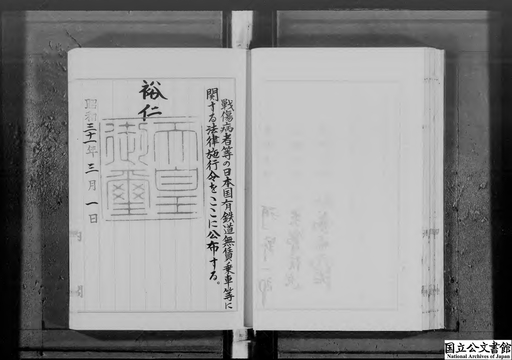 戦傷病者等の日本国有鉄道無賃乗車等に
関する法律施行令をここに公布する。
裕仁
天皇
御璽
昭和三十一年三月一日
国立公文書館
National Archives of Japan